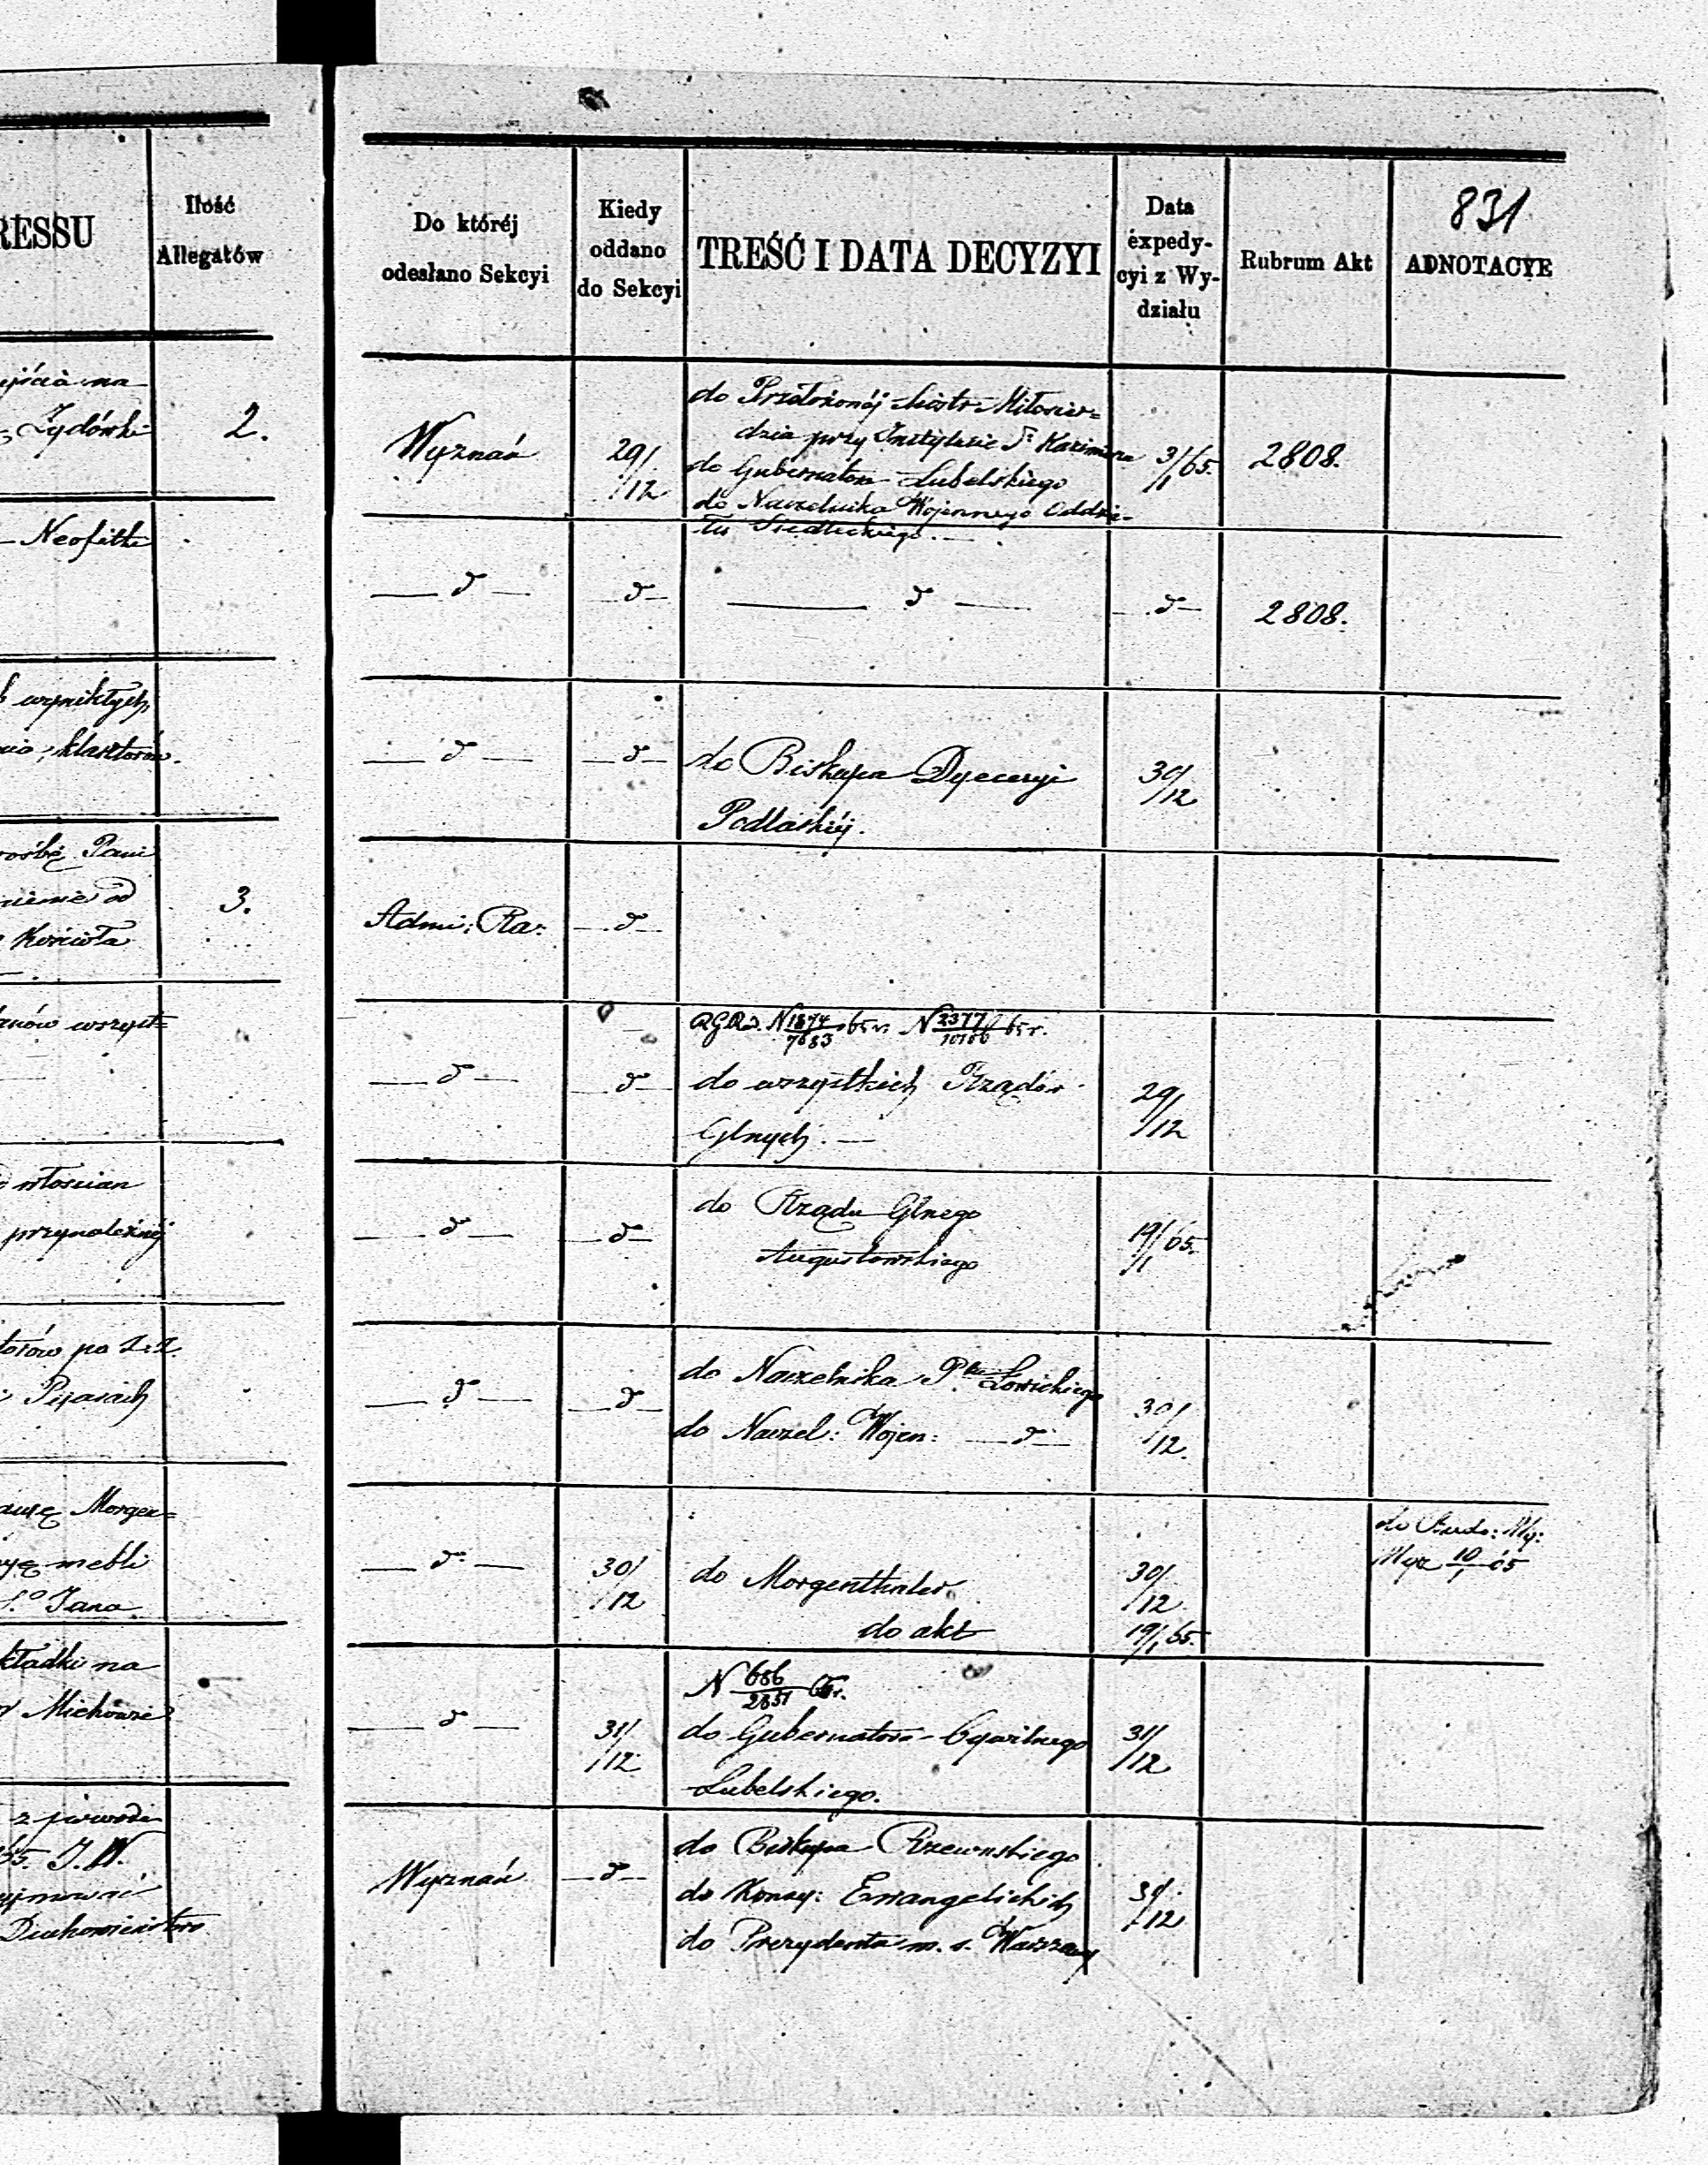 RESSU
Ilość
Allegatów
Żydówki
2.
Neofitki
wynikłych
klasztorów.
Pani
od
3.
Kościoła
wszyst=
włościan
przynależnéj
po
Morgen=
mebli
Ś.º Jana
składki na
Michowie
z powodu
65. J. W.
Duchowieństwo
831
Do któréj
odesłano Sekcyi
Kiedy
oddano
do Sekcyi
TREŚĆ I DATA DECYZYI
Data
expedy-
cyi z Wy-
działu
Rubrum Akt
ADNOTACYE
Wyznań
29/12
do Przełożonéj Sióstr Miłosier=
dzia przy Instytucie Sº Kazimierza
do Gubernatora Lubelskiego
do Naczelnika Wojennego Oddzia-
łu Siedleckiego.
3/1 65.
2808.
— d — — d — — d — — d —
2808.
— d — — d —
do Biskupa Dyecezyi
Podlaskiéj.
30/12
Admi: Ra: — d —
— d — — d —
N 1874/7683 65 r. N 2377/10166 65 r.
do wszystkich Rządów
Glnych. —
29/12
— d — — d —
do Rządu Glnego
Augustowskiego
19/1 65.
— d — — d —
do Naczelnika Ptu Łowickiego
do Naczel: Wojen: — d —
30/12.
— d — 30/12
do Morgenthaler
30/12
do akt
19/1 65.
10/1 65
— d — 31/12
N 686/2851 65 r.
do Gubernatora Cywilnego
Lubelskiego.
31/12
Wyznań — d —
do Biskupa Rzewuskiego
do Konsy: Ewangelickich
do Prezydenta m. s. Warszawy
31/12